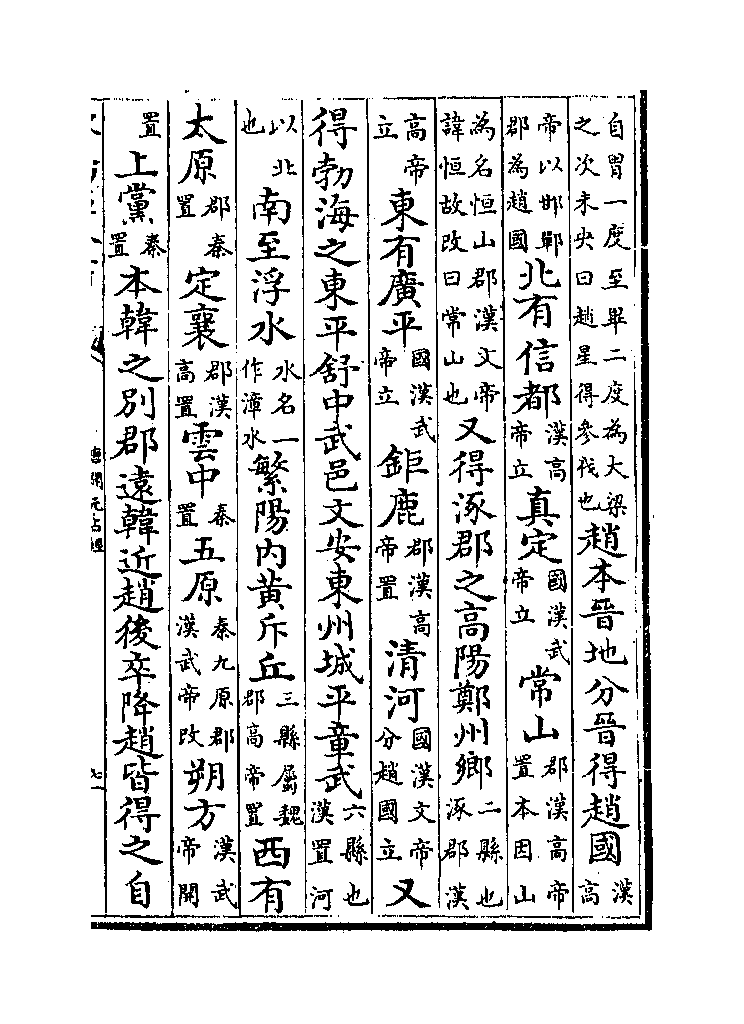 自胃一度至畢二度為大梁之次未央曰趙星得參伐也趙本晉地分晉得趙國漢高
帝以邯鄲郡為趙國北有信都漢高帝立真定國漢武帝立常山郡漢高帝置本因山
為名恒山郡漢文帝諱恒故改曰常山也又得涿郡之高陽鄭州鄉二縣也涿郡漢
高帝立東有廣平國漢武帝立鉅鹿郡漢高帝置清河國漢文帝分趙國立又
得勃海之東平舒中武邑文安東州城平章武六縣也漢置河
以北也南至浮水水名一作漳水繁陽内黃斥丘三縣屬魏郡高帝置西有
太原郡秦置定襄郡漢高置雲中秦置五原秦九原郡漢武帝改朔方漢武帝開
置上黨秦置本韓之別郡遠韓近趙後卒降趙皆得之自
唐開元占經